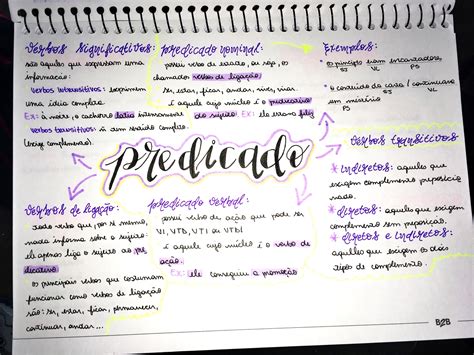 verbos significativos:
são aqueles que expressam uma
informação:
verbos intransitivos: exprimem
uma ideia completa.
Ex: à noite, o cachorro latia
verbos transitivos: ñ tem sentido completo.
(exige complemento).
predicado nominal:
possui verbo de estado, ou seja, os
chamados verbos de ligação.
Ser, estar, ficar, andar, viver, virar
É aquele cujo núcleo é o predicativo
do sujeito. Ex: ele estava feliz
Exemplos:
VL
PS
o consumo do carro / continuava
SJ
VL
um mistério
PS
predicado
verbos transitivos
* indiretos: aqueles que
exigem complemento preposicio
nado.
* diretos: aqueles que exigem
complemento sem preposição.
* diretos e indiretos:
aqueles que exigem os dois
tipos de complemento.
verbos de ligação:
verbo que, por si mesmo,
nada informa sobre o sujeito:
ele apenas liga o sujeito ao pre
dicativo
os principais verbos que costumam
funcionar como verbos de ligação
são: ser, estar, ficar, permanecer,
continuar, andar...
predicado verbal:
possui verbo de ação que pode ser
VI, VTD, VTI ou VTDI
É aquele cujo núcleo é o verbo de
ação.
Ex: ele conseguiu a promoção
B2B